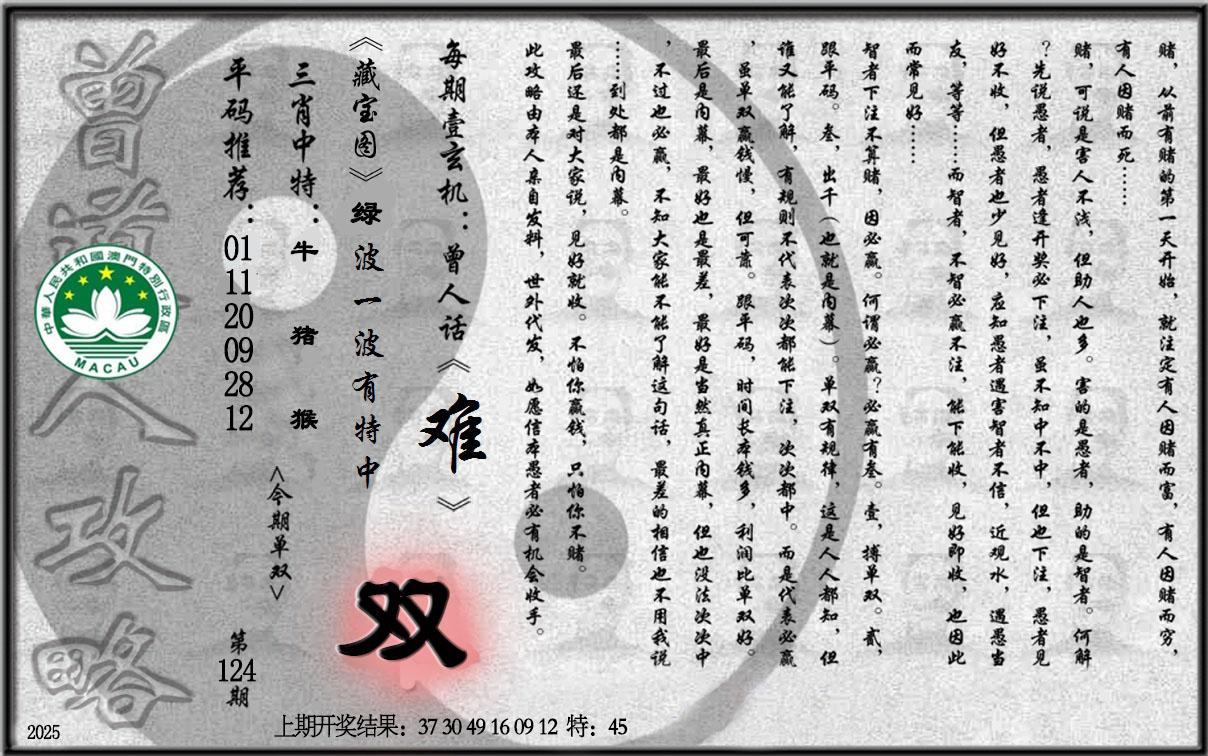 赌，从前有赌的第一天开始，就注定有人因赌而富，有人因赌而穷，
有人因赌而死……
赌，可说是害人不浅，但助人也多。害的是愚者，助的是智者。何解
？先说愚者，愚者逢开奖必下注，虽不知中不中，但也下注，愚者见
好不收，但愚者也少见好，应知愚者遇害智者不信，近观水，遇愚当
友，等等……而智者，不智必赢不注，能下能收，见好即收，也因此
而常见好……
智者下注不算赌，因必赢。何谓必赢？必赢有叁。壹，搏单双。贰，
跟平码。叁，出千（也就是内幕）。单双有规律，这是人人都知，但
谁又能了解，有规则不代表次次都能下注，次次都中。而是代表必赢
，虽单双赢钱慢，但可靠。跟平码，时间长本钱多，利润比单双好。
最后是内幕，最好也是最差，最好是当然真正内幕，但也没法次次中
，不过也必赢，不知大家能不能了解这句话，最差的相信也不用我说
……到处都是内幕。
最后还是对大家说，见好就收。不怕你赢钱，只怕你不赌。
此攻略由本人亲自发料，世外代发，如愿信本愚者必有机会收手。
每期壹玄机：曾人话《难》
《藏宝图》绿波一波有特中
双
三肖中特：牛 猪 猴
<今期单双>
平码推荐：01 11 20 09 28 12
第124期
曾道人攻略
中華人民共和國澳門特別行政區
MACAU
2025
上期开奖结果：37 30 49 16 09 12 特：45